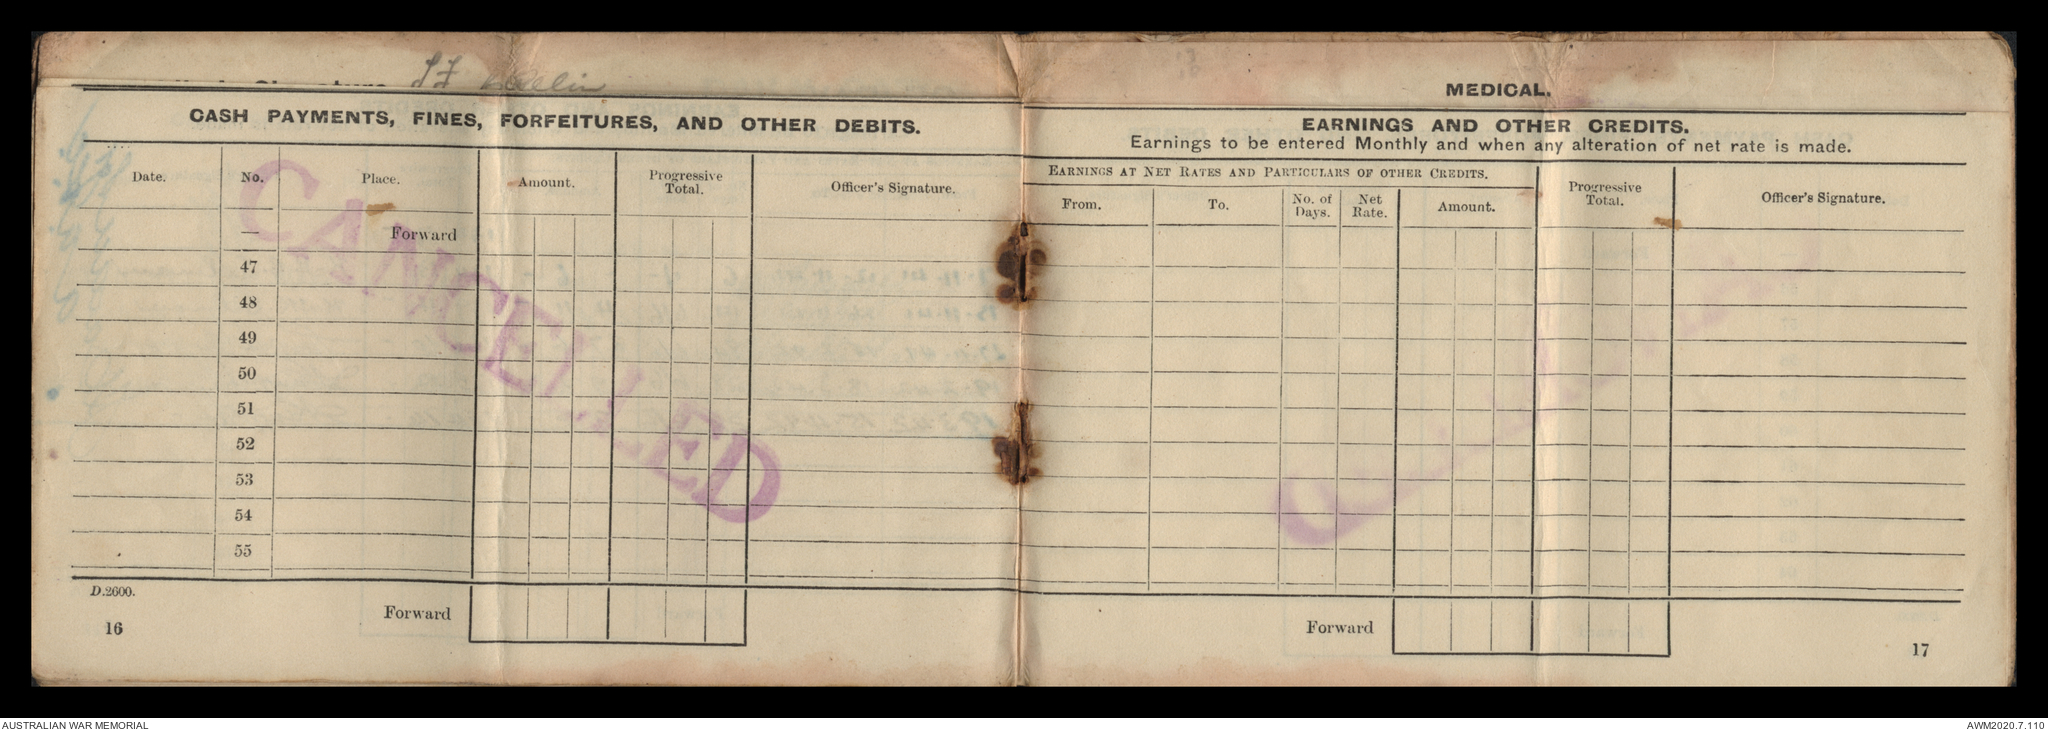 MEDICAL.
CASH PAYMENTS, FINES, FORFEITURES, AND OTHER DEBITS.
Date. No. Place. Amount. Progressive Total. Officer's Signature.
— Forward
47
48
49
50
51
52
53
54
55
CANCELLED
D.2600.
Forward
16
EARNINGS AND OTHER CREDITS.
Earnings to be entered Monthly and when any alteration of net rate is made.
EARNINGS AT NET RATES AND PARTICULARS OF OTHER CREDITS.
From. To. No. of Days. Net Rate. Amount. Progressive Total. Officer's Signature.
Forward
17
AUSTRALIAN WAR MEMORIAL
AWM2020.7.110